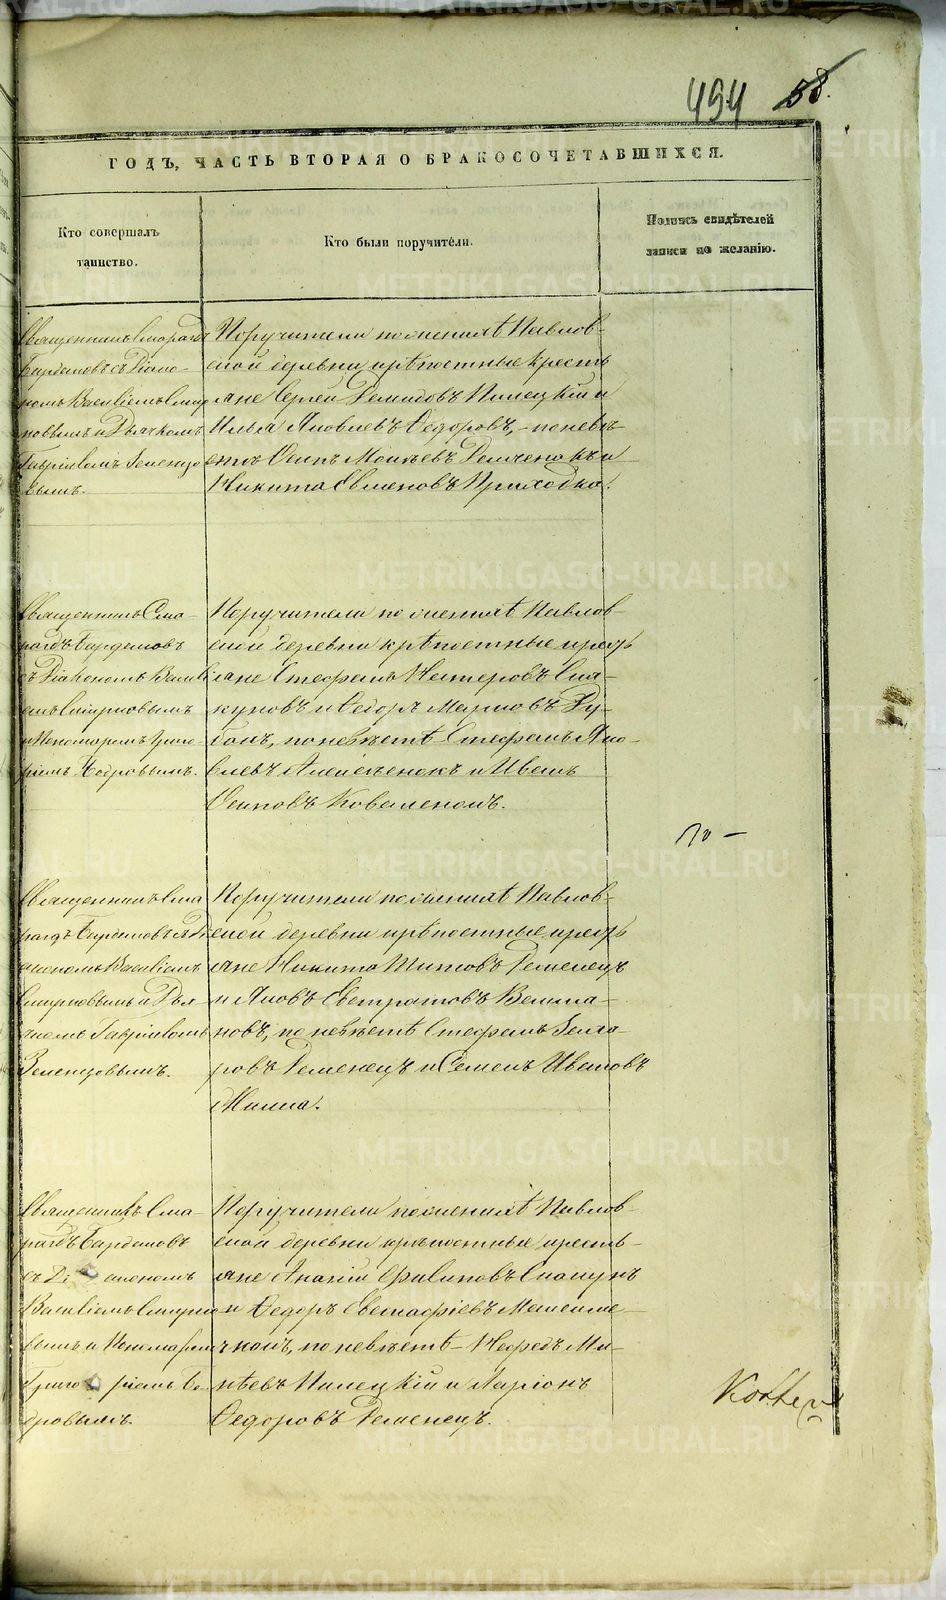 494 38.
ГОДЪ, ЧАСТЬ ВТОРАЯ О БРАКОСОЧЕТАВШИХСЯ.
Кто совершалъ
таинство.
Кто были поручители.
Подпись свидѣтелей
записи по желанію.
Священникъ Смарагдъ
Бардаковъ съ Діако-
номъ Василіемъ Смир
новымъ и Дьячкомъ
Гавріиломъ Зеленцо
вымъ.
Поручители по женихѣ Павлов-
ской деревни крѣпостные кресть
яне Сергей Демидовъ Пилецкій и
Илья Яковлевъ Ѳедоровъ, - по невѣ-
стѣ Осипъ Моисѣевъ и
Никита Евменовъ Приходко.
Священникъ Сма-
рагдъ Бардаковъ
съ Діакономъ Васил
емъ Смирновымъ
и Пономаремъ Григо-
ріемъ Бодровымъ.
Поручители по женихѣ Павлов-
ской деревни крѣпостные кресть
яне Стефанъ Нестеровъ Ска-
куновъ и Ѳедоръ Марковъ Ду-
бакъ, по невѣстѣ Стефанъ Яко-
влевъ и Иванъ
Осиповъ Коваленокъ.
Священникъ Сма
рагдъ Бардаковъ съ Ді
акономъ Василіемъ
Смирновымъ и Дья-
чкомъ Гавріиломъ
Зеленцовымъ.
Поручители по женихѣ Павлов-
ской деревни крѣпостные кресть
яне Никита Титовъ Деменецъ
и Яковъ Евстратовъ Вельма-
ковъ, по невѣстѣ Стефанъ Заха-
ровъ Деменецъ и Семенъ Ивановъ
Священникъ Сма-
рагдъ Бардаковъ
съ Діакономъ
Василіемъ Смирно
вымъ и Пономарем
Григоріемъ Бо-
дровымъ.
Поручители по женихѣ Павлов-
ской деревни крѣпостные кресть-
яне Ананій Филиповъ Скакунъ
и Ѳедоръ Евстафіевъ
по невѣстѣ - Нефедъ Ми-
нѣевъ Пилецкій и Ларіонъ
Ѳедоровъ Деменецъ.